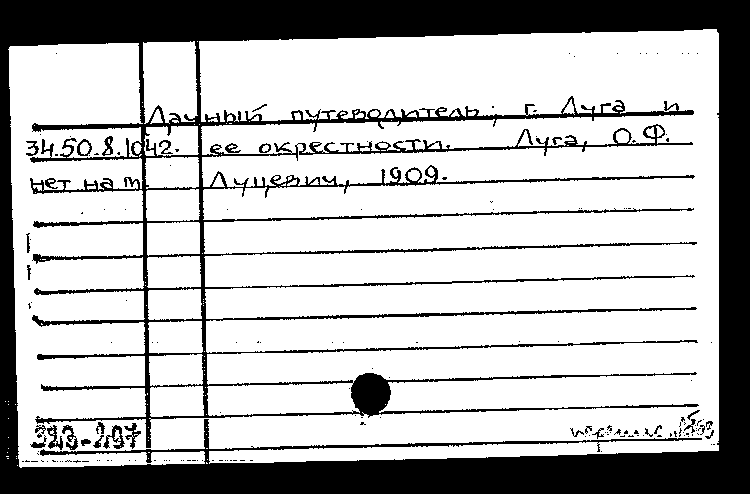 Дачный путеводитель; г. Луга и
34.50.8.1042. ее окрестности. Луга, О.Ф.
нет на т. Луцевич, 1909.